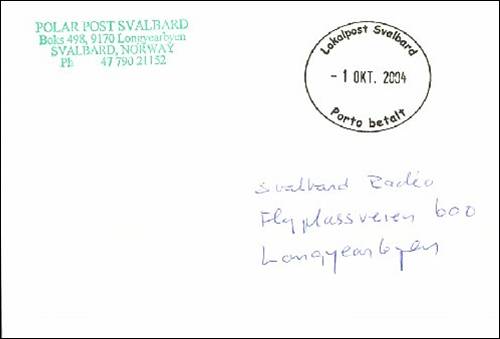 POLAR POST SVALBARD
Boks 498, 9170 Longyearbyen
SVALBARD, NORWAY
Ph 47 790 21152
Lokalpost Svalbard
- 1 OKT. 2004
Porto betalt
Svalbard Radio
Flyplassveien 600
Longyearbyen